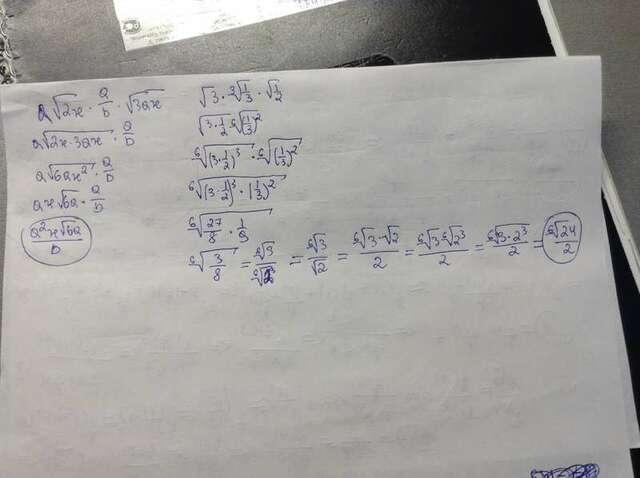 a√2x · a/b · √3ax
a√2x·3ax · a/b
a√6ax² · a/b
ax√6a · a/b
a²x√6a/b
√3 · ³√1/3 · √1/2
√3·1/2 ⁶√(1/3)²
⁶√(3·1/2)³ · ⁶√(1/3)²
⁶√(3·1/2)³ · (1/3)²
⁶√27/8 · 1/9
⁶√3/8 = ⁶√3/⁶√2³ = ⁶√3/√2 = ⁶√3·√2/2 = ⁶√3·⁶√2³/2 = ⁶√3·2³/2 = ⁶√24/2